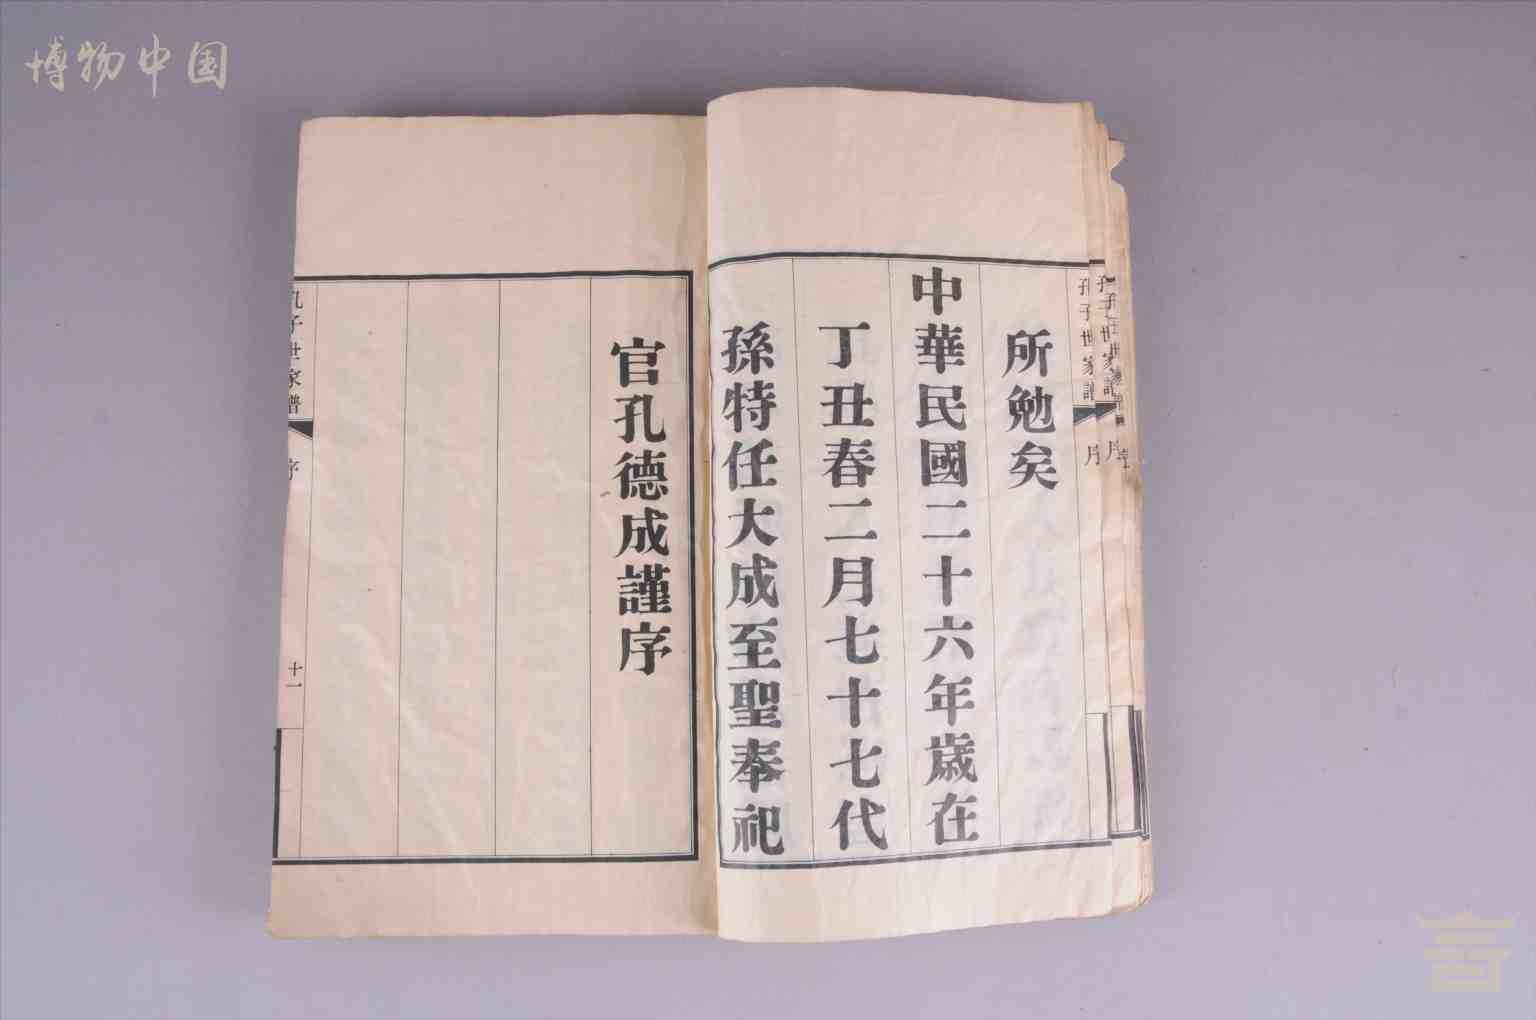 博物中国
所勉矣
中華民國二十六年歲在
丁丑春二月七十七代
孫特任大成至聖奉祀
官孔德成謹序
孔子世家譜
序
十一